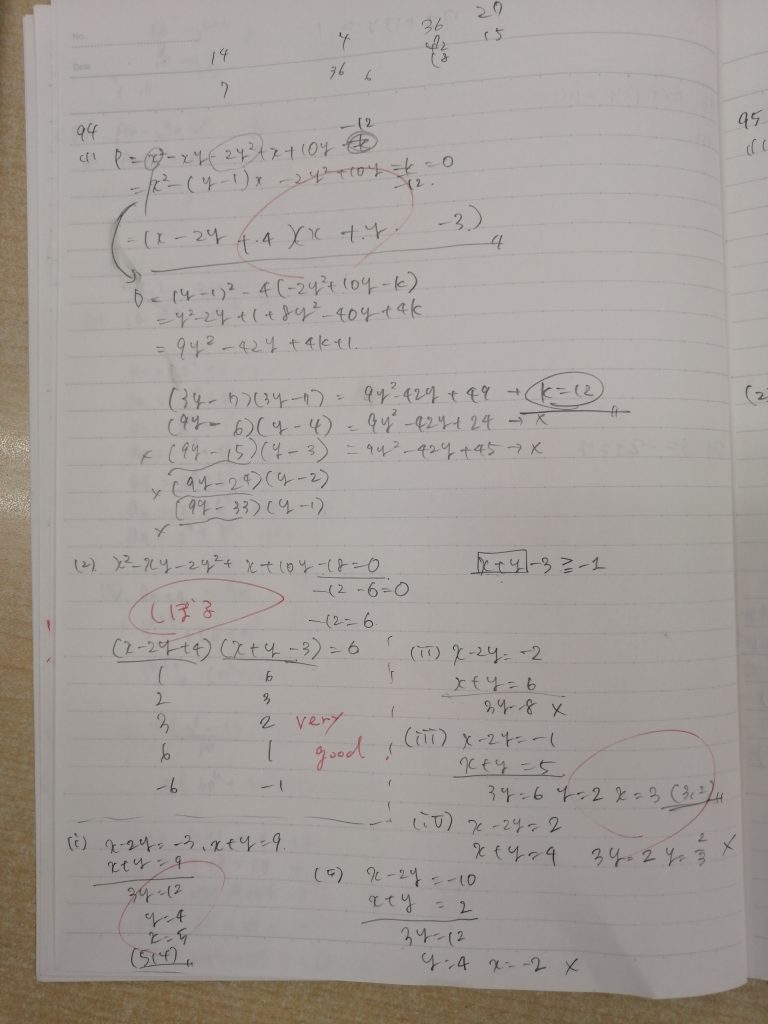 No.
Date
14 4 36 20
7 36 6 42 18 15
94
(1) P = x²-xy-2y²+x+10y-k -12
= x²-(y-1)x -2y²+10y-k = 0 -12.
= (x-2y+4)(x+y -3)
D = (y-1)²-4(-2y²+10y-k)
= y²-2y+1+8y²-40y+4k
= 9y²-42y+4k+1.
(3y-7)(3y-7) = 9y²-42y+49 → k=12
(9y-6)(y-4) = 9y²-42y+24 → x
x (9y-15)(y-3) = 9y²-42y+45 → x
x (9y-24)(y-2)
x (9y-33)(y-1)
(2) x²-xy-2y²+x+10y-18=0
-12-6=0
-12=6
しぼる
x+y-3≧-1
(x-2y+4)(x+y-3)=6
1 6
2 3
3 2
6 1
-6 -1
very
good!
(i) x-2y=-3, x+y=9
x+y=9
3y=12
y=4
x=5
(5,4)
(ii) x-2y=-2
x+y=6
3y=8 x
(iii) x-2y=-1
x+y=5
3y=6 y=2 x=3 (3,2)
(iv) x-2y=2
x+y=4 3y=2 y=2/3 x
(5) x-2y=-10
x+y=2
3y=12
y=4 x=-2 x
95
(1)
(2)